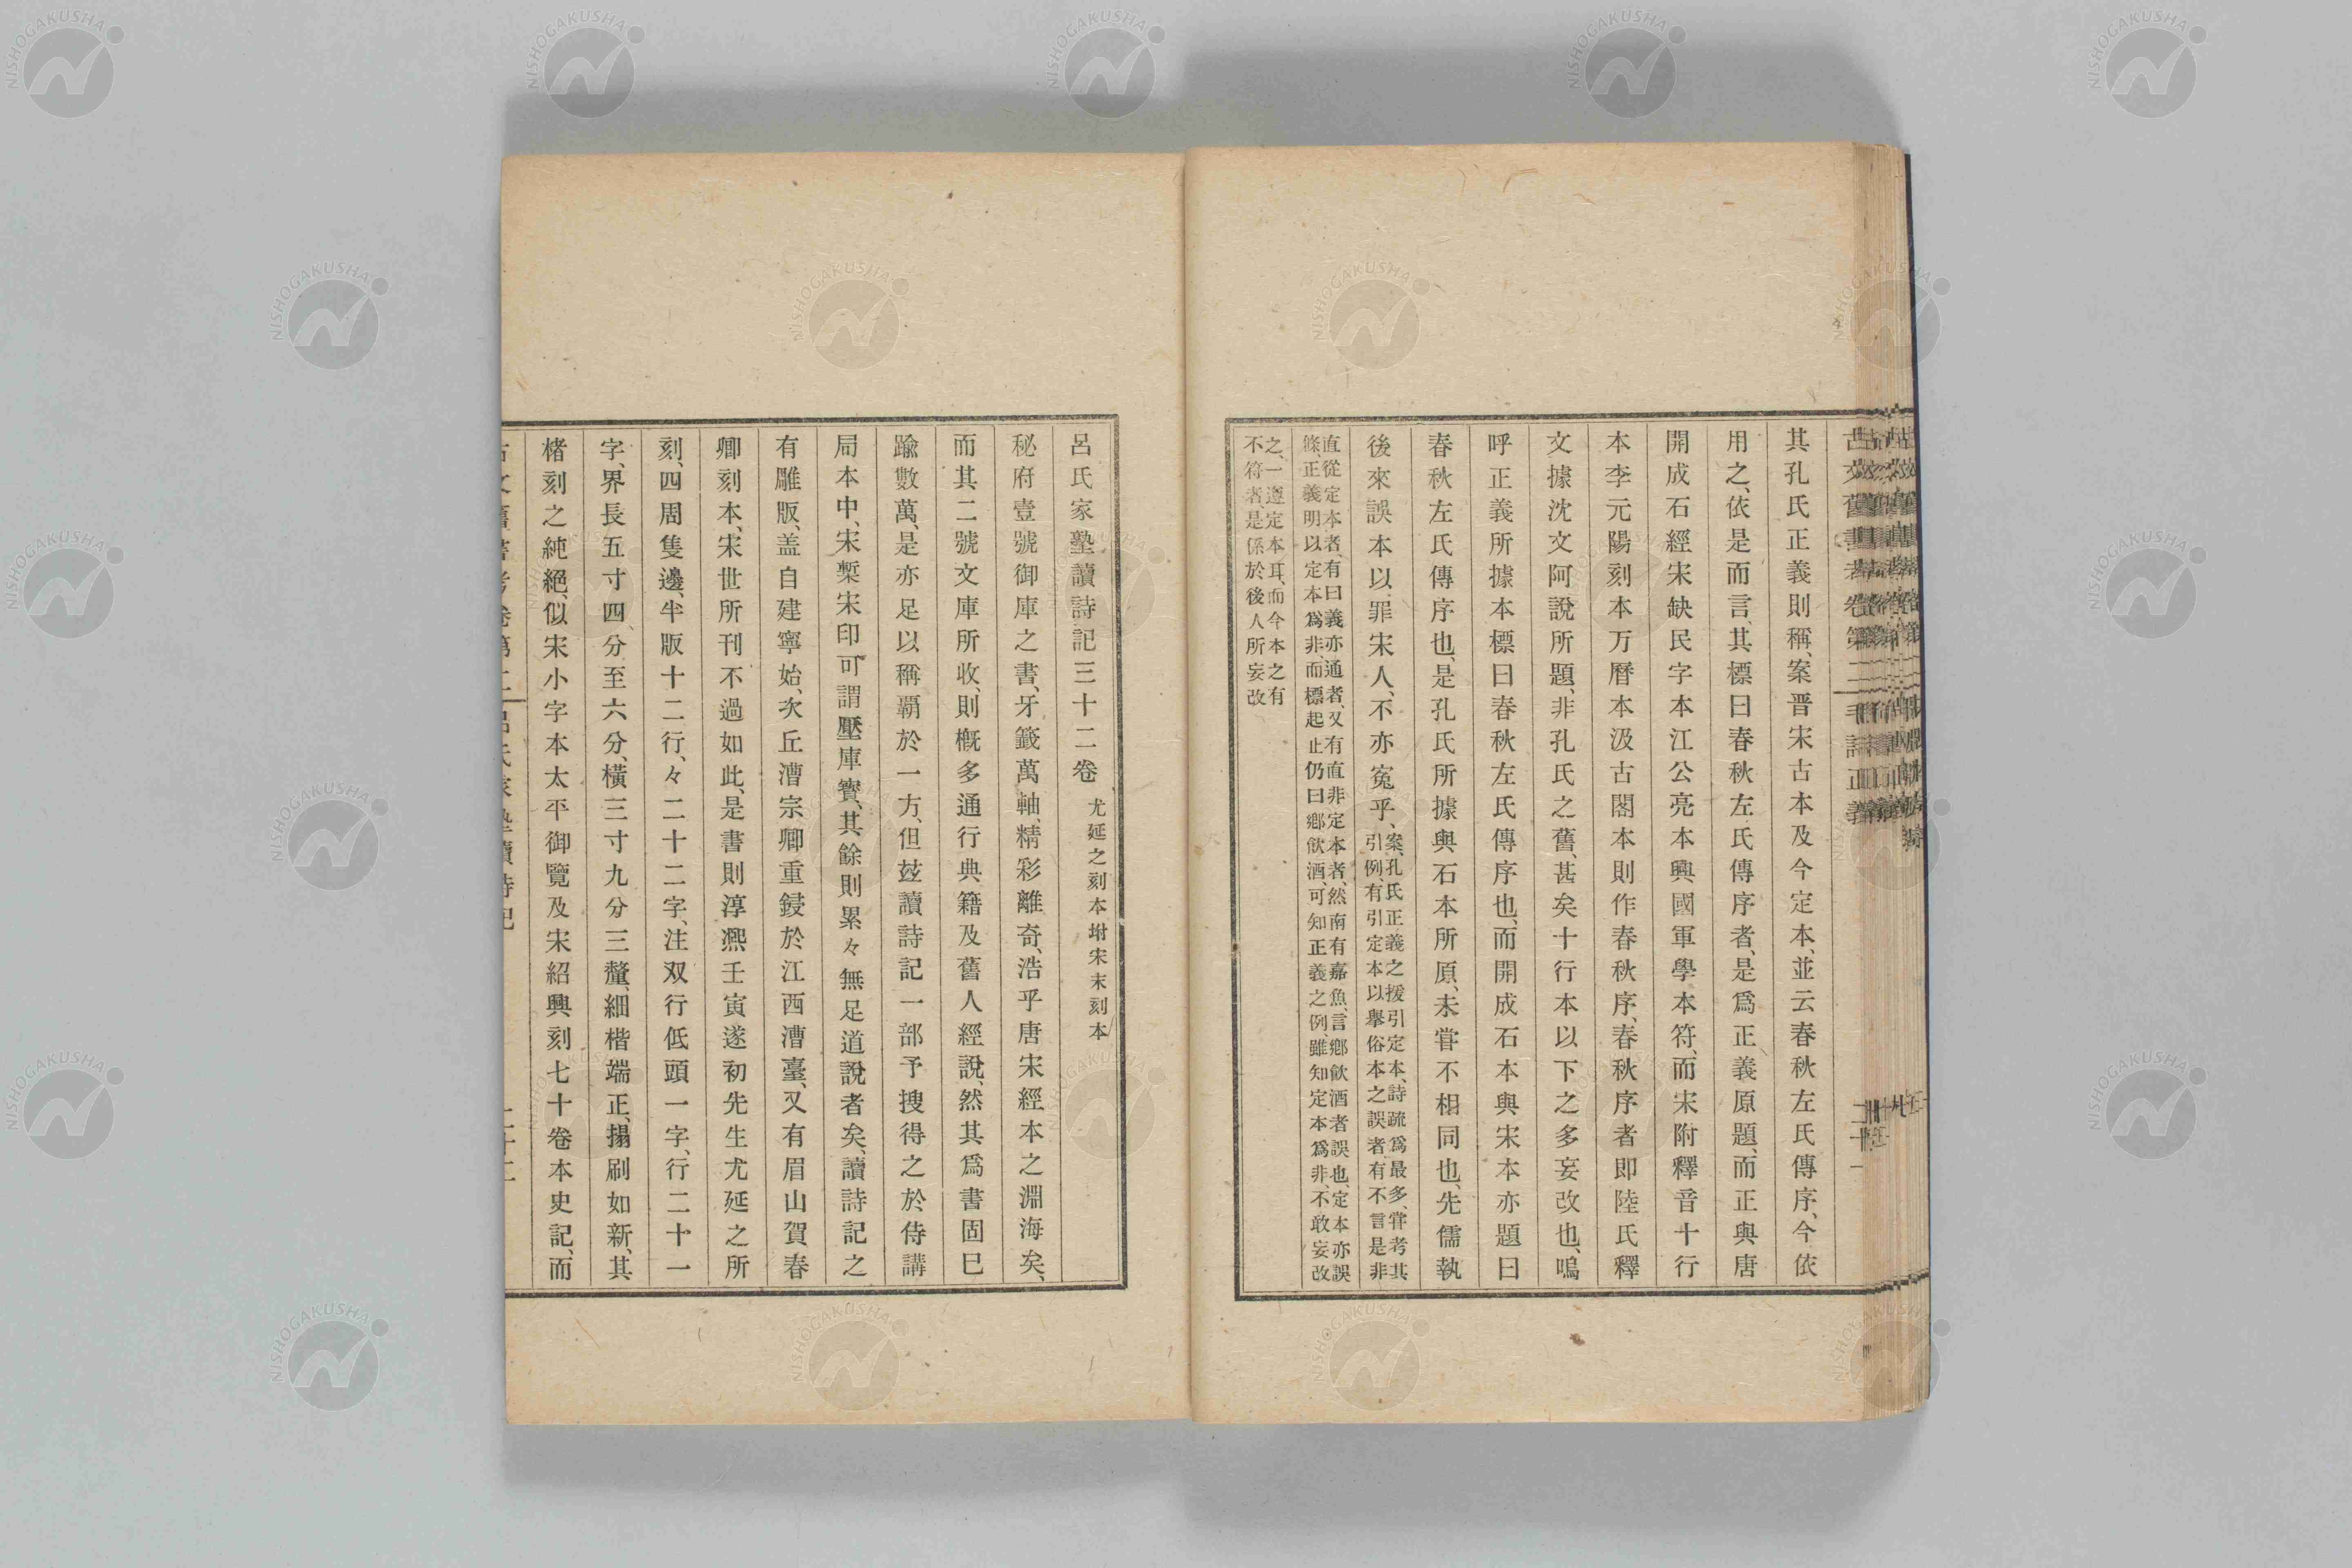 其孔氏正義則稱、案晋宋古本及今定本、並云春秋左氏傳序、今依
用之、依是而言、其標曰春秋左氏傳序者、是爲正義原題、而正與唐
開成石經宋缺民字本江公亮本興國軍學本符、而宋附釋音十行
本李元陽刻本万曆本汲古閣本則作春秋序、春秋序者即陸氏釋
文據沈文阿說所題、非孔氏之舊、甚矣十行本以下之多妄改也、嗚
呼正義所據本標曰春秋左氏傳序也、而開成石本與宋本亦題曰
春秋左氏傳序也、是孔氏所據與石本所原、未甞不相同也、先儒執
後來誤本以罪宋人、不亦寃乎、
案、孔氏正義之援引定本、詩疏爲最多、甞考其
引例、有引定本以擧俗本之誤者有不言是非
直從定本者、有曰義亦通者、又有直非定本者、然南有嘉魚、言鄉飮酒者誤也、定本亦誤
條、正義明以定本爲非、而標起止仍曰鄉飮酒、可知正義之例、雖知定本爲非、不敢妄改
之、一遵定本耳、而今本之有
不符者、是係於後人所妄改
呂氏家塾讀詩記三十二卷 尤延之刻本坿宋末刻本
秘府壹號御庫之書、牙籤萬軸、精彩離奇、浩乎唐宋經本之淵海矣、
而其二號文庫所收、則槪多通行典籍及舊人經說、然其爲書固巳
踰數萬、是亦足以稱覇於一方、但玆讀詩記一部予搜得之於侍講
局本中、宋槧宋印可謂壓庫寶、其餘則累々無足道說者矣、讀詩記之
有雕版、盖自建寧始、次丘漕宗卿重鋟於江西漕臺、又有眉山賀春
卿刻本、宋世所刊不過如此、是書則淳凞壬寅遂初先生尤延之所
刻、四周隻邊、半版十二行、々二十二字、注双行低頭一字、行二十一
字、界長五寸四分至六分、橫三寸九分三釐、細楷端正、搨刷如新、其
楮刻之純絕、似宋小字本太平御覽及宋紹興刻七十卷本史記、而